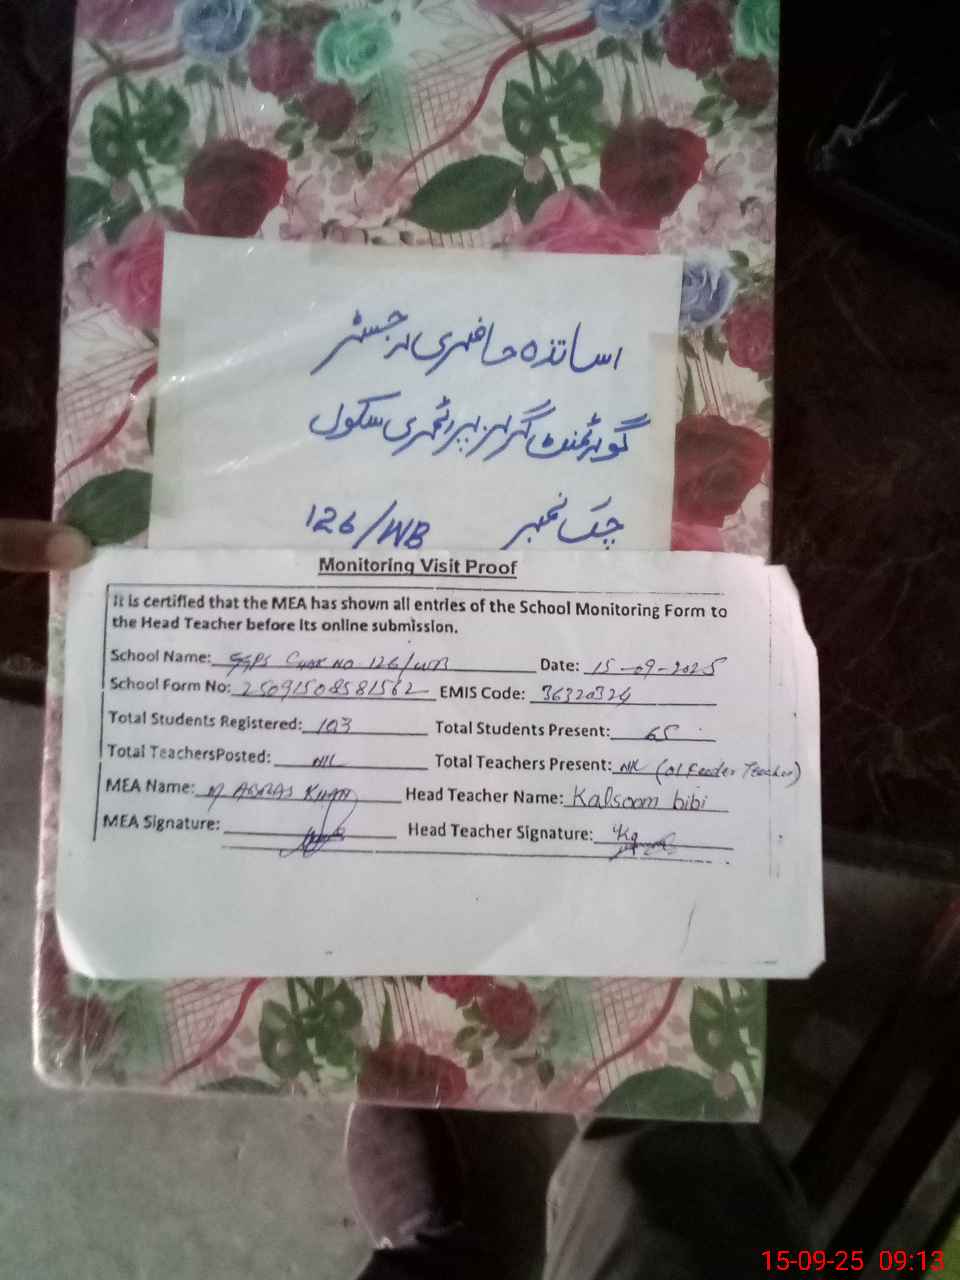 اساتذہ حاضری رجسٹر
گورنمنٹ گرلز پرائمری سکول
چک نمبر 126/WB
Monitoring Visit Proof
It is certified that the MEA has shown all entries of the School Monitoring Form to
the Head Teacher before its online submission.
School Name: GGPS Chak No. 126/WB Date: 15-09-2025
School Form No: 25091508581562 EMIS Code: 36320324
Total Students Registered: 103 Total Students Present: 65
Total TeachersPosted: NIL Total Teachers Present: NIL (01 Feeder Teacher)
MEA Name: M Khan Head Teacher Name: Kalsoom bibi
MEA Signature: Head Teacher Signature:
15-09-25 09:13